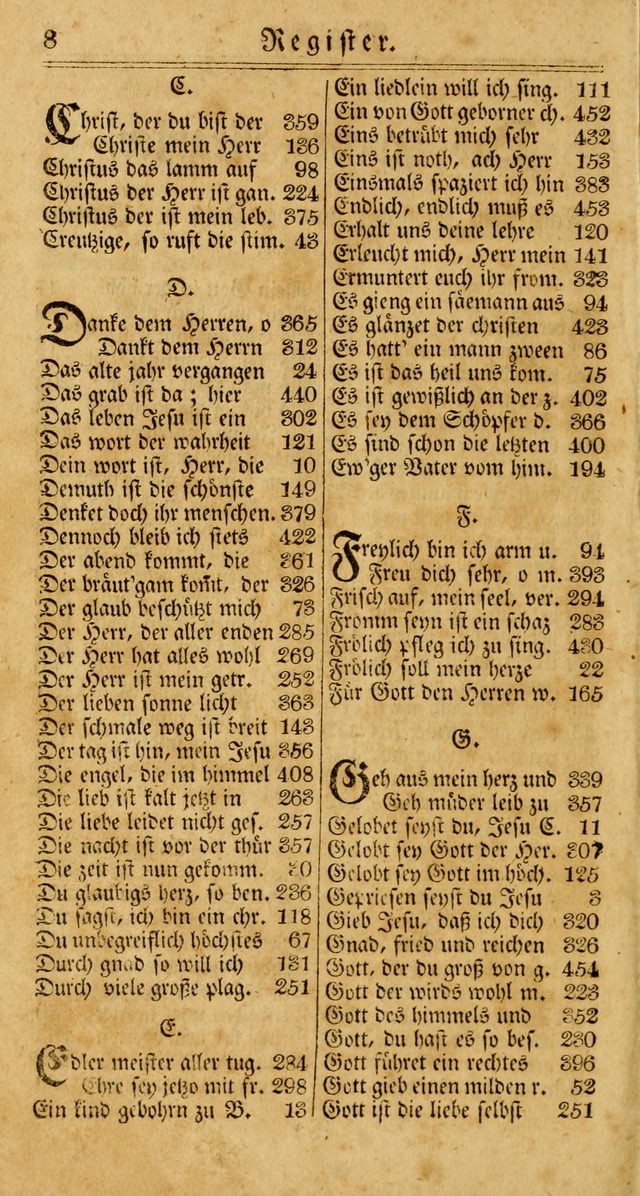 8 Register.
C.
Christ, der du bist der 359
Christe mein Herr 136
Christus das lamm auf 98
Christus der Herr ist gan. 224
Christus der ist mein leb. 375
Creutzige, so ruft die stim. 43
D.
Danke dem Herren, o 365
Dankt dem Herrn 312
Das alte jahr vergangen 24
Das grab ist da; hier 440
Das leben Jesu ist ein 302
Das wort der wahrheit 121
Dein wort ist, Herr, die 10
Demuth ist die schönste 149
Denket doch ihr menschen. 379
Dennoch bleib ich stets 422
Der abend kommt, die 361
Der bräut'gam kom̃t, der 326
Der glaub beschützt mich 73
Der Herr, der aller enden 285
Der Herr hat alles wohl 269
Der Herr ist mein getr. 252
Der lieben sonne licht 363
Der schmale weg ist breit 143
Der tag ist hin, mein Jesu 356
Die engel, die im himmel 408
Die lieb ist kalt jetzt in 263
Die liebe leidet nicht ges. 257
Die nacht ist vor der thür 357
Die zeit ist nun gekomm. 80
Du glaubigs herz, so ben. 236
Du sagst, ich bin ein chr. 118
Du unbegreiflich höchstes 67
Durch gnad so will ich 131
Durch viele große plag. 251
E.
Edler meister aller tug. 234
Ehre sey jetzo mit fr. 298
Ein kind gebohrn zu B. 13
Ein liedlein will ich sing. 111
Ein von Gott geborner ch. 452
Eins betrübt mich sehr 432
Eins ist noth, ach Herr 153
Einsmals spaziert ich hin 383
Endlich, endlich muß es 453
Erhalt uns deine lehre 120
Erleucht mich, Herr mein 141
Ermuntert euch ihr from. 323
Es gieng ein säemann aus 94
Es glänzet der christen 423
Es hatt' ein mann zween 86
Es ist das heil uns kom. 75
Es ist gewißlich an der z. 402
Es sey dem Schöpfer d. 366
Es sind schon die letzten 400
Ew'ger Vater vom him. 194
F.
Freylich bin ich arm u. 91
Freu dich sehr, o m. 393
Frisch auf, mein seel, ver. 294
Fromm seyn ist ein schaz 283
Frölich pfleg ich zu sing. 430
Frölich soll mein herze 22
Für Gott den Herren w. 165
G.
Geh aus mein herz und 339
Geh müder leib zu 357
Gelobet seyst du, Jesu C. 11
Gelobt sey Gott der Her. 307
Gelobt sey Gott im höch. 125
Gepriesen seyst du Jesu 3
Gieb Jesu, daß ich dich 320
Gnad, fried und reichen 326
Gott, der du groß von g. 454
Gott der wirds wohl m. 223
Gott des himmels und 352
Gott, du hast es so bes. 230
Gott führet ein rechtes 396
Gott gieb einen milden r. 52
Gott ist die liebe selbst 251